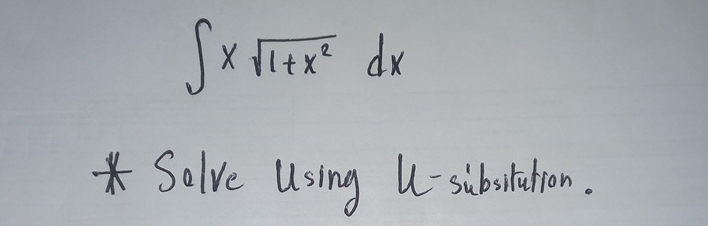 ∫ x √(1+x²) dx
* Solve Using U-subsitution.